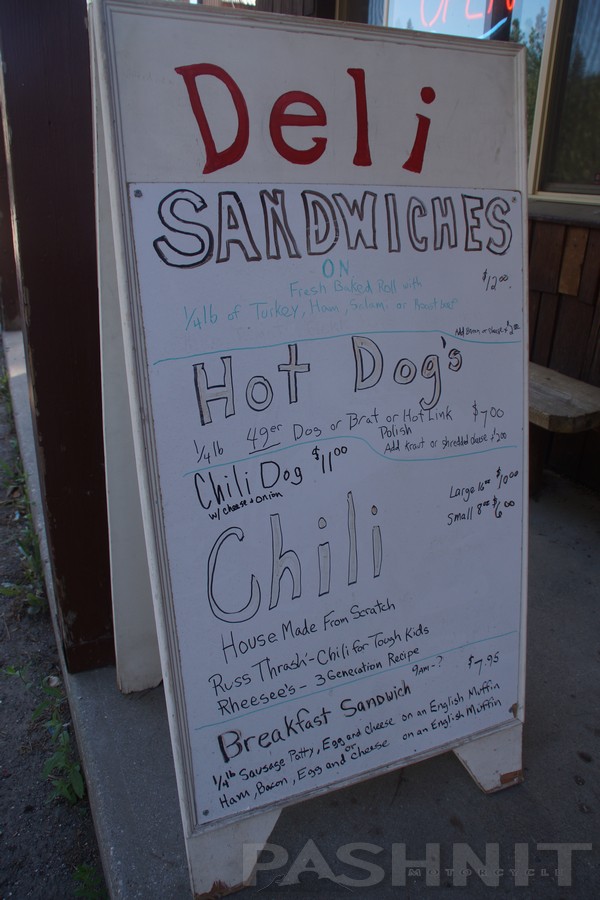 OPEN
Deli
SANDWICHES
ON
Fresh Baked Roll with $12.00.
1/4 lb of Turkey, Ham, Salami or Roast Beef
Add Bacon or cheese
Hot Dog's
1/4 lb 49er Dog or Brat or Hot Link $7.00
Polish
Add Kraut or shredded cheese $2.00
Chili Dog $11.00
w/ cheese & Onion
Large 16oz $10.00
Small 8oz $6.00
Chili
House Made From Scratch
Russ Thrash - Chili for Tough Kids
Rheesee's - 3 Generation Recipe
9AM-? $7.95
Breakfast Sandwich
1/4 lb Sausage Patty, Egg and cheese on an English Muffin
or
Ham, Bacon, Egg and Cheese on an English Muffin
PASHNIT
MOTORCYCLE